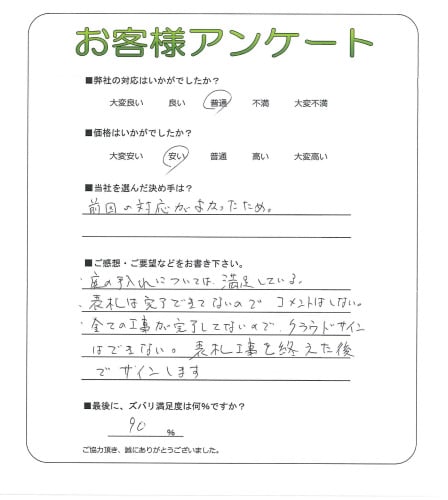 お客様アンケート
■弊社の対応はいかがでしたか？
大変良い 良い 普通 不満 大変不満
■価格はいかがでしたか？
大変安い 安い 普通 高い 大変高い
■当社を選んだ決め手は？
前回の対応がよかったため。
■ご感想・ご要望などをお書き下さい。
・庭の手入れについては、満足している。
・表札は完了できてないので コメントはしない。
・全ての工事が完了してないので、クラウドサイン
はできない。表札工事を終えた後
でサインします
■最後に、ズバリ満足度は何%ですか？
90 %
ご協力頂き、誠にありがとうございました。